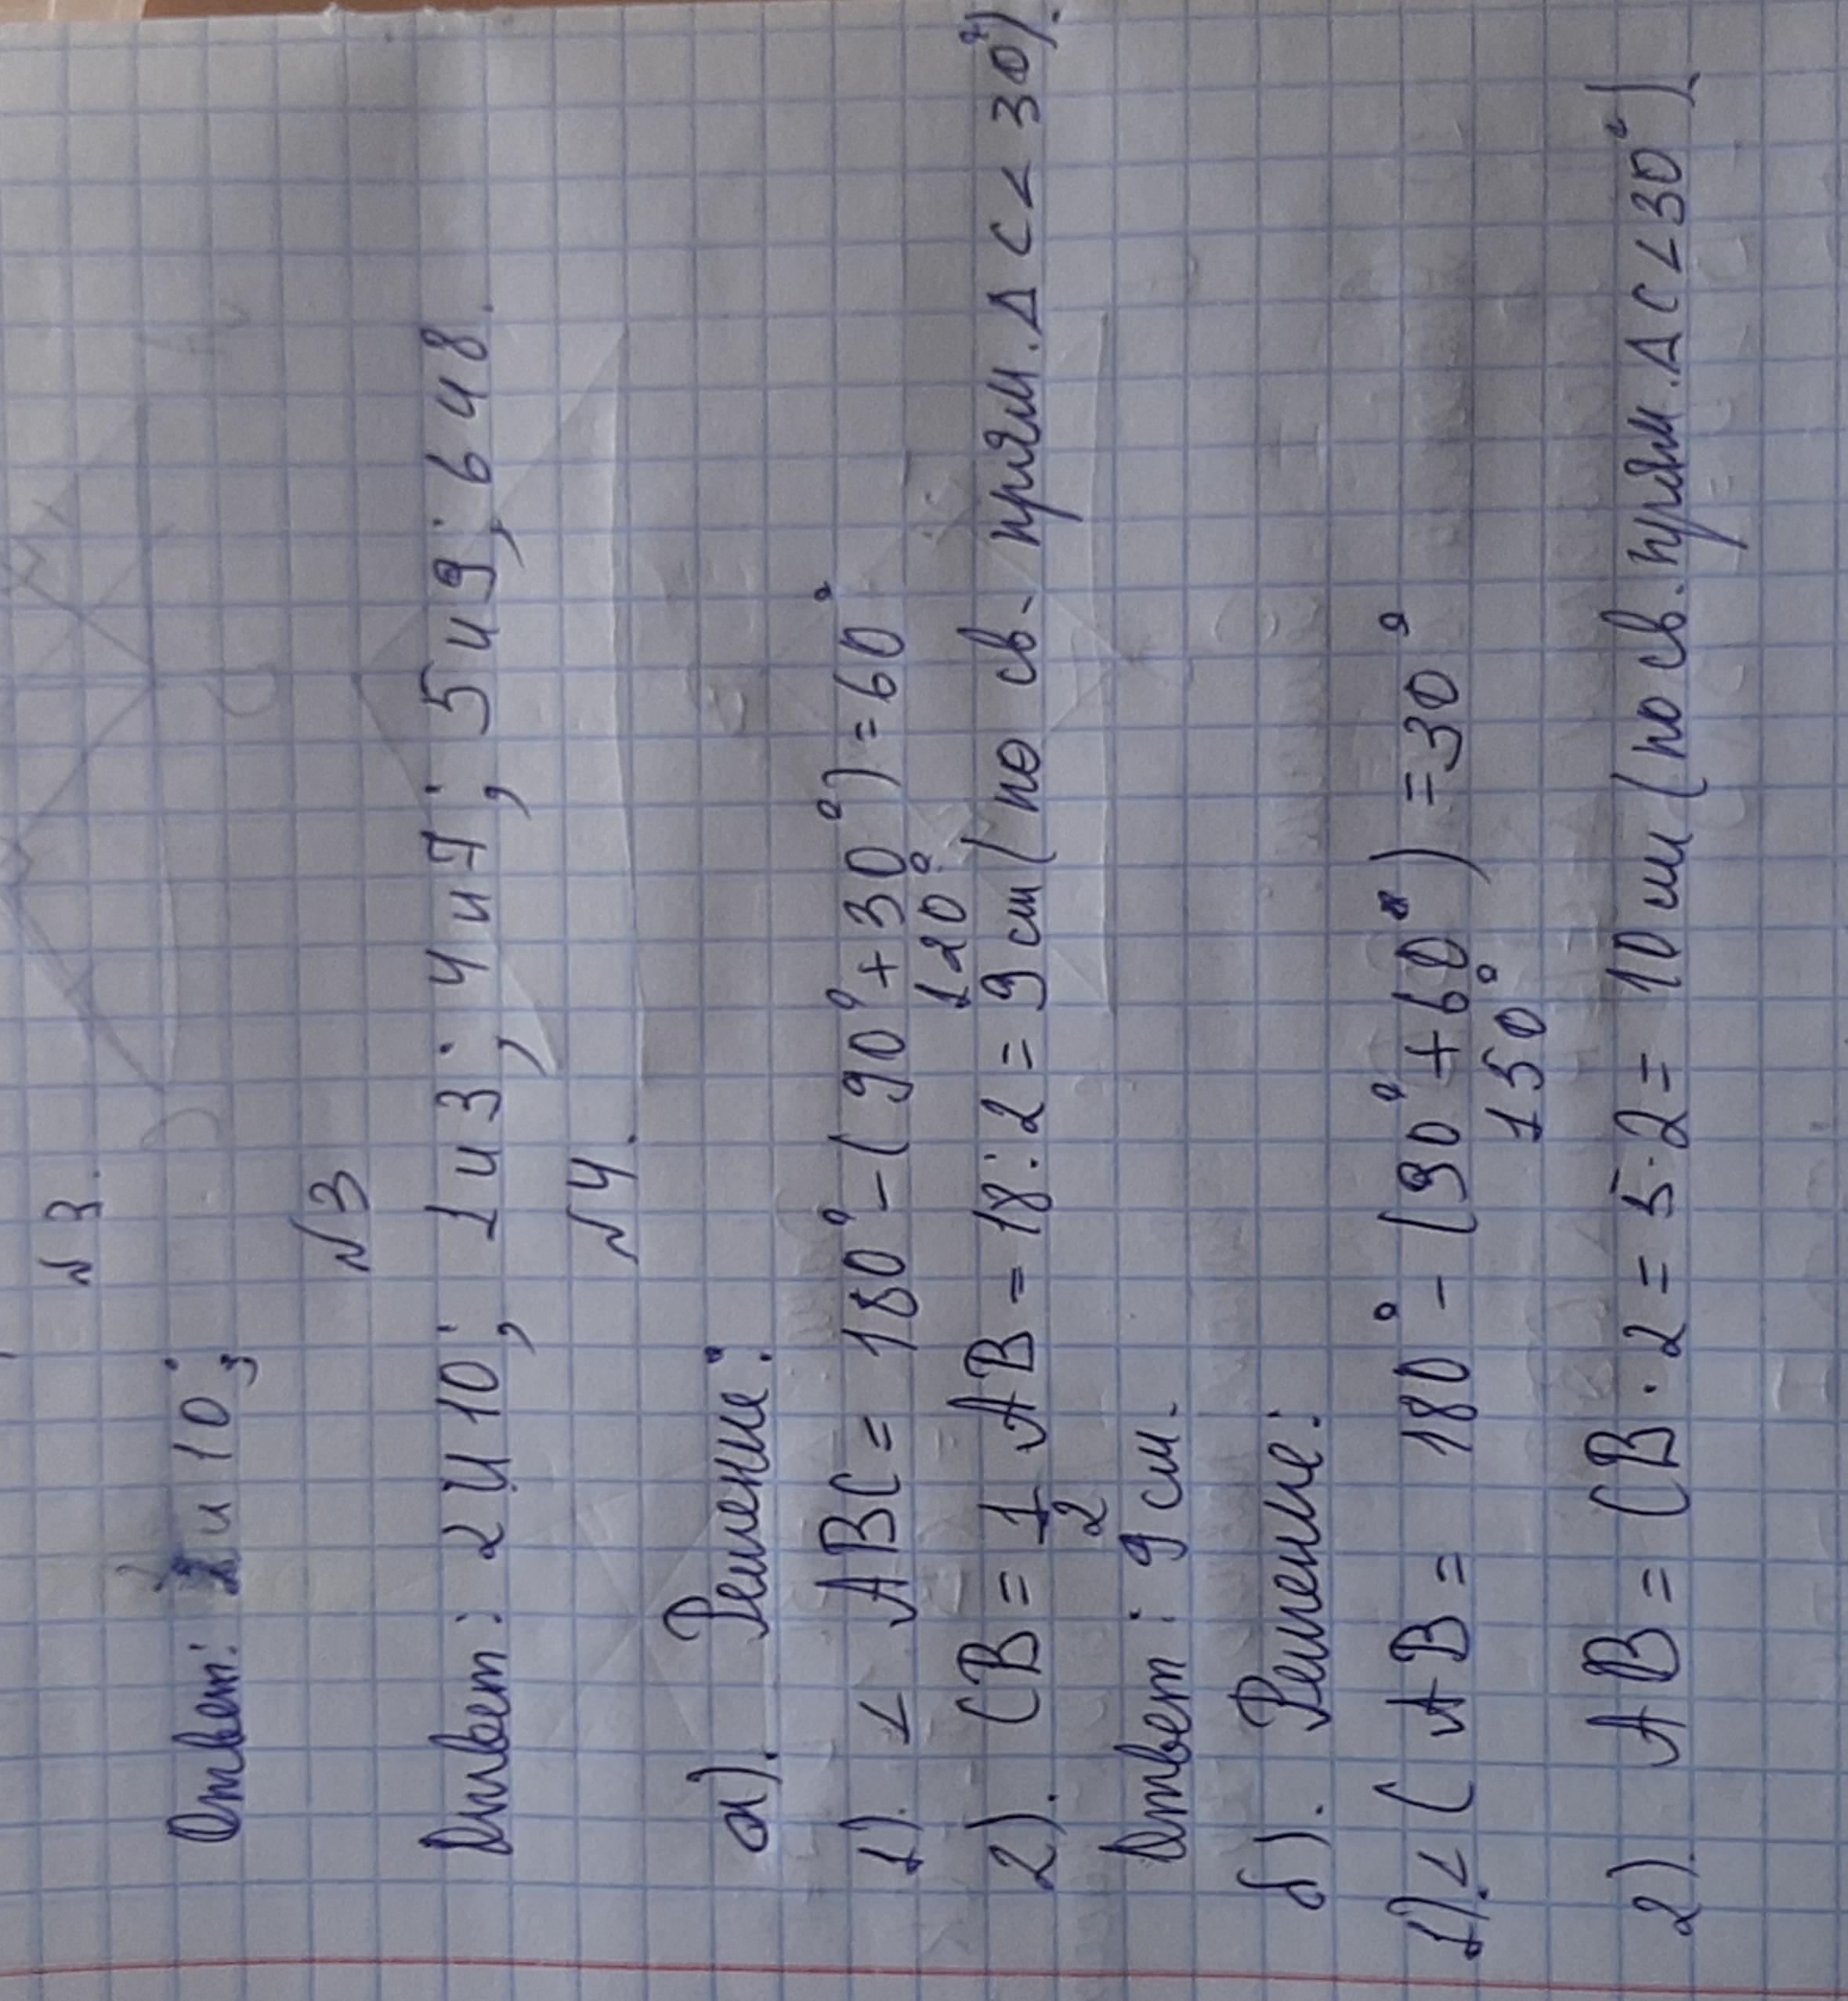 № 3.
Ответ: 2 и 10;
№3
Ответ: 2 и 10; 1 и 3; 4 и 7; 5 и 9; 6 и 8.
№4.
а). Решение:
1). ∠ ABC = 180° - (90° + 30°) = 60°
120°
2). CB = 1/2 AB = 18 : 2 = 9 см (по св. прям. Δ с ∠ 30°).
Ответ: 9 см.
б). Решение:
1). ∠ CAB = 180° - (90° + 60°) = 30°
150°
2). AB = CB · 2 = 5 · 2 = 10 см (по св. прям. Δ с ∠ 30°).